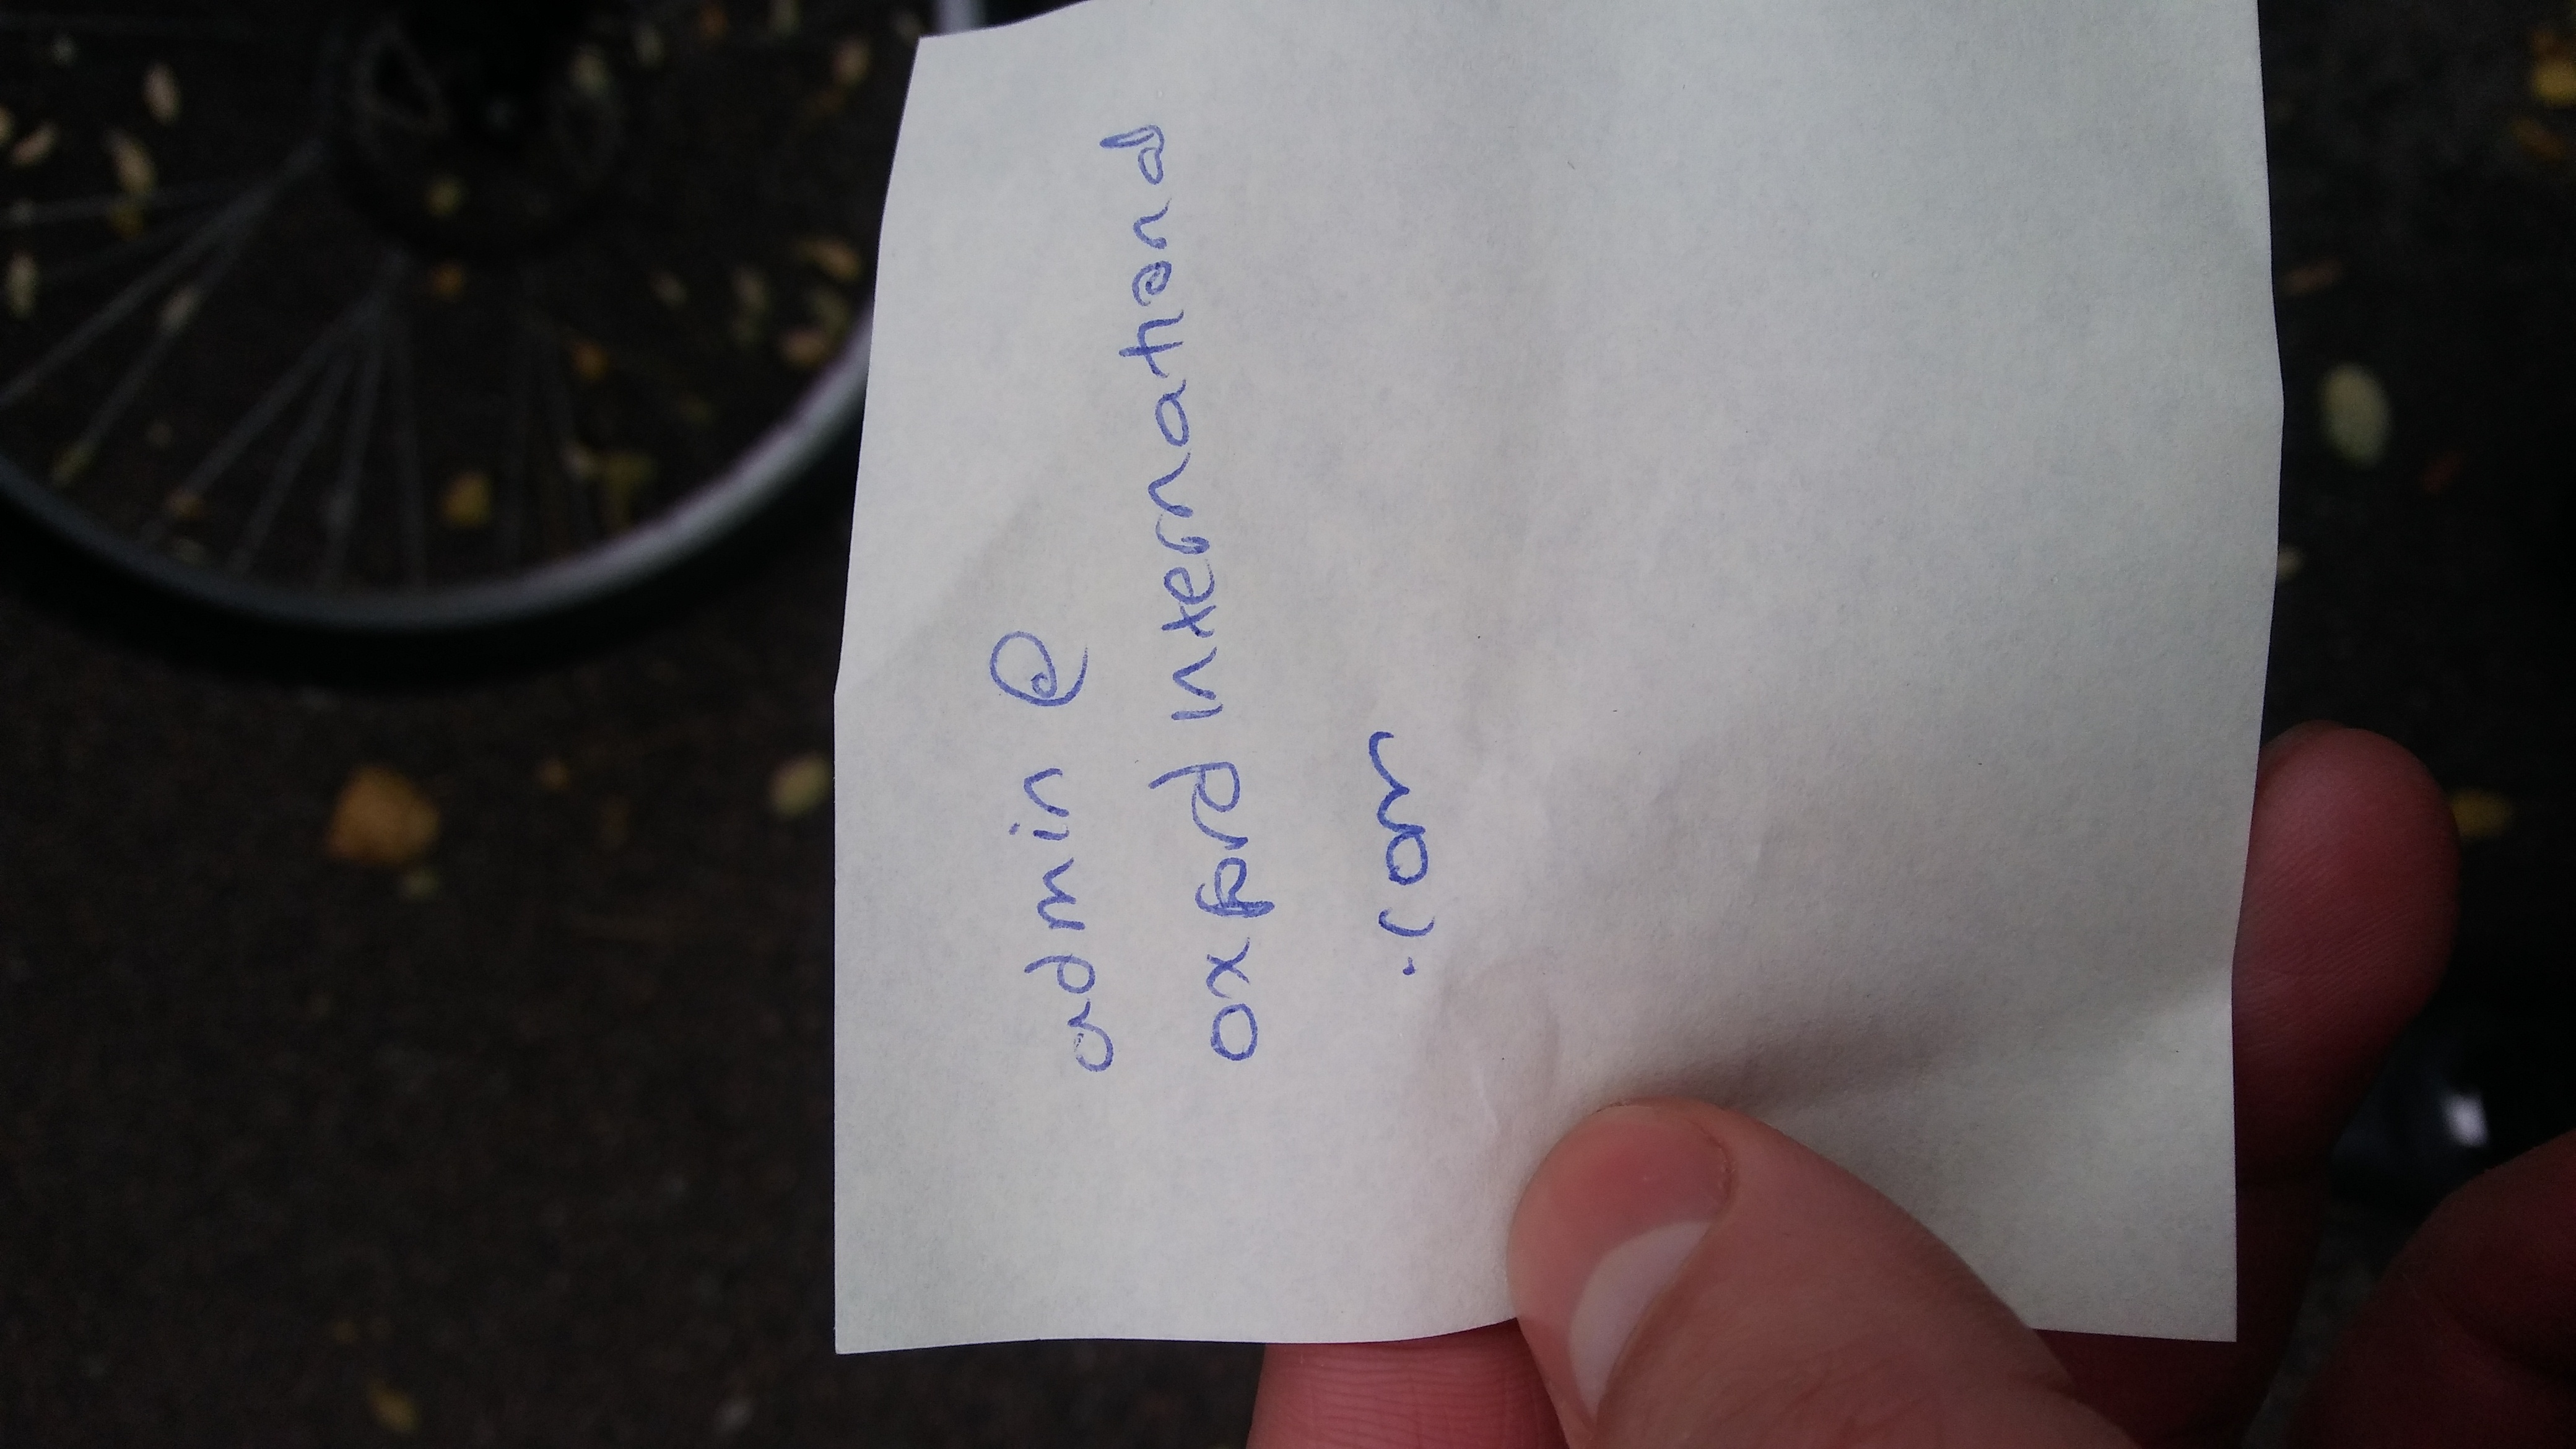 admin @
oxford international
.com